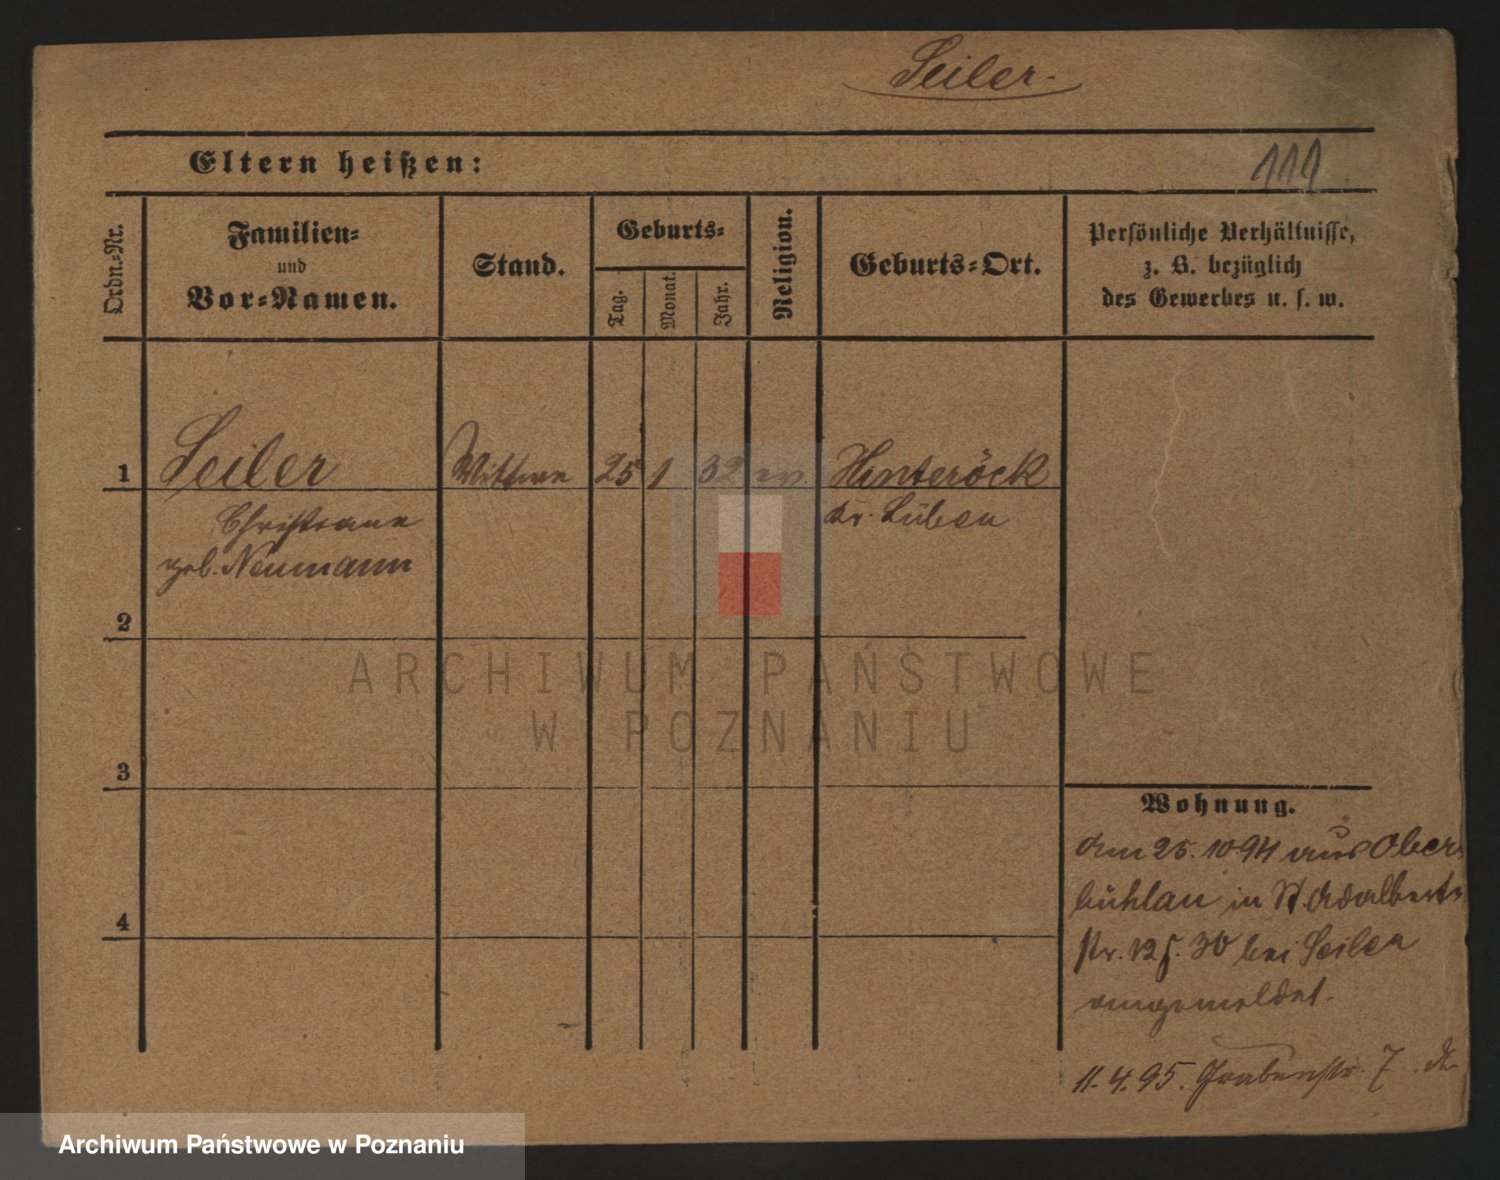 Seiler.
Eltern heißen:
111
Ordn.-Nr.
Familien-
und
Vor-Namen.
Stand.
Geburts-
Tag.
Monat.
Jahr.
Religion.
Geburts-Ort.
Persönliche Verhältnisse,
z. B. bezüglich
des Gewerbes u. s. w.
1 Seiler Wittwe 25 1 32 ev. Hinteröck
Christiane Kr. Lüben
geb. Neumann
2
3
4
Wohnung.
Am 25. 10 94 aus Ober-
in St. Adalbert-
str. 12 30 bei Seiler
angemeldet.
11. 4. 95. Grabenstr. 7.
ARCHIWUM PAŃSTWOWE
W POZNANIU
Archiwum Państwowe w Poznaniu